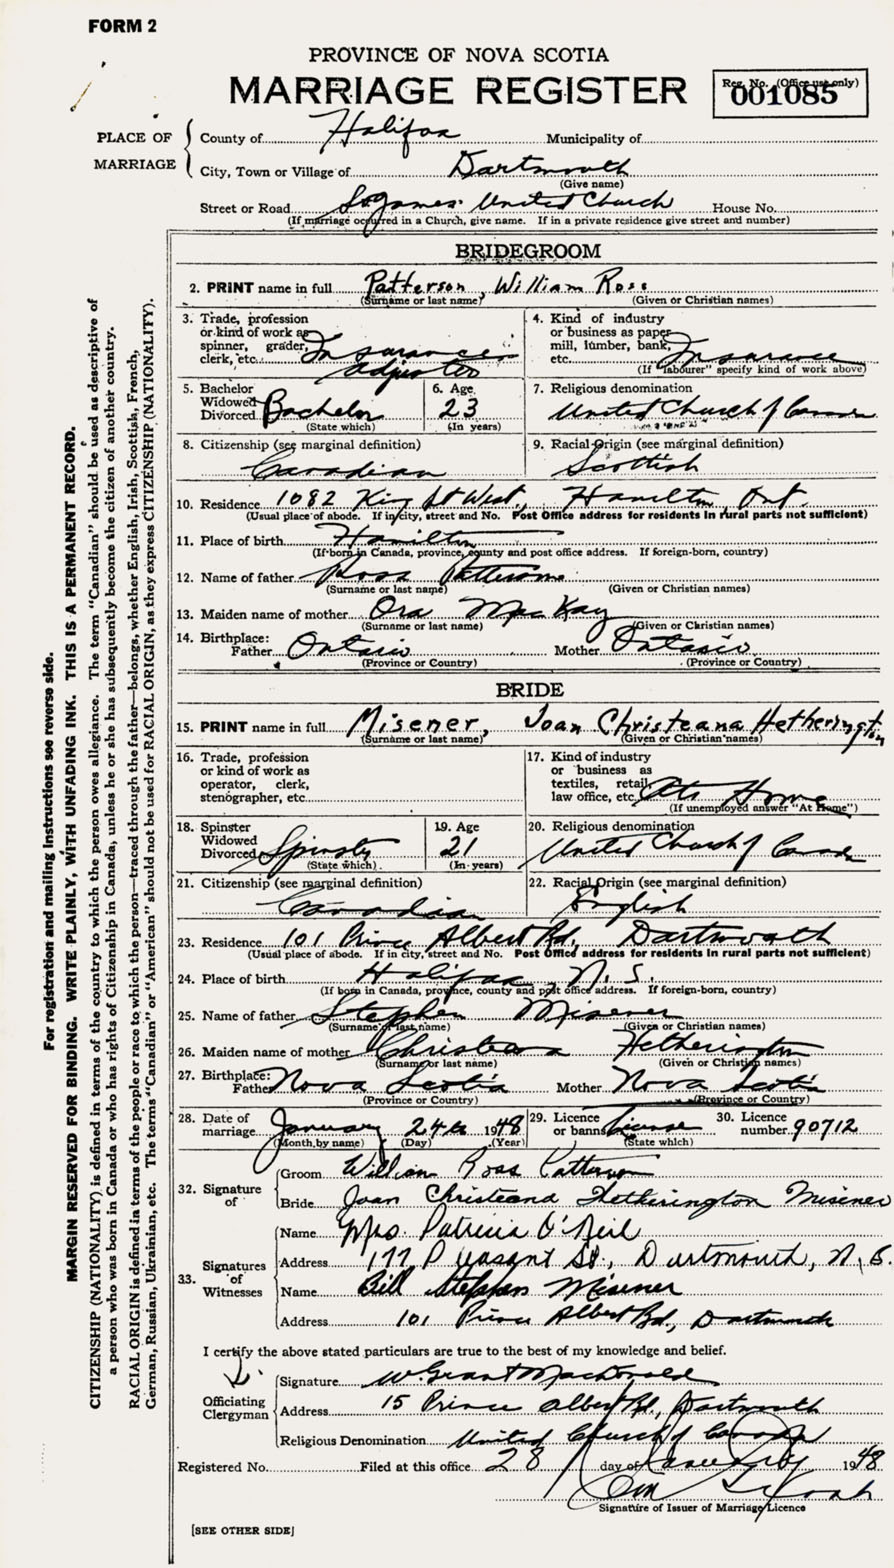 FORM 2
PROVINCE OF NOVA SCOTIA
MARRIAGE REGISTER
Reg. No. (Office use only)
001085
PLACE OF MARRIAGE
County of Halifax Municipality of
City, Town or Village of Dartmouth
(Give name)
Street or Road St James United Church House No.
(If marriage occurred in a Church, give name. If in a private residence give street and number)
BRIDEGROOM
2. PRINT name in full Patterson, William Ross
(Surname or last name) (Given or Christian names)
3. Trade, profession or kind of work as spinner, grader, clerk, etc. Insurance adjuster
4. Kind of industry or business as paper mill, lumber, bank, etc. Insurance
(If "labourer" specify kind of work above)
5. Bachelor Widowed Divorced Bachelor
(State which)
6. Age 23
(In years)
7. Religious denomination
United Church of Canada
8. Citizenship (see marginal definition)
Canadian
9. Racial Origin (see marginal definition)
Scottish
10. Residence 1082 King St West, Hamilton, Ont.
(Usual place of abode. If in city, street and No. Post Office address for residents in rural parts not sufficient)
11. Place of birth Hamilton
(If born in Canada, province, county and post office address. If foreign-born, country)
12. Name of father Ross Patterson
(Surname or last name) (Given or Christian names)
13. Maiden name of mother Ora MacKay
(Surname or last name) (Given or Christian names)
14. Birthplace:
Father Ontario Mother Ontario
(Province or Country) (Province or Country)
BRIDE
15. PRINT name in full Misener, Joan Christeana Hetherington
(Surname or last name) (Given or Christian names)
16. Trade, profession or kind of work as operator, clerk, stenographer, etc.
17. Kind of industry or business as textiles, retail, law office, etc. At Home
(If unemployed answer "At Home")
18. Spinster Widowed Divorced Spinster
(State which)
19. Age 21
(In years)
20. Religious denomination
United Church of Canada
21. Citizenship (see marginal definition)
Canadian
22. Racial Origin (see marginal definition)
English
23. Residence 101 Prince Albert Rd, Dartmouth
(Usual place of abode. If in city, street and No. Post Office address for residents in rural parts not sufficient)
24. Place of birth Halifax, N.S.
(If born in Canada, province, county and post office address. If foreign-born, country)
25. Name of father Stephen Misener
(Surname or last name) (Given or Christian names)
26. Maiden name of mother Christeana Hetherington
(Surname or last name) (Given or Christian names)
27. Birthplace:
Father Nova Scotia Mother Nova Scotia
(Province or Country) (Province or Country)
28. Date of marriage January 24th 1948
(Month by name) (Day) (Year)
29. Licence or banns License
(State which)
30. Licence number 90712
32. Signature of
Groom William Ross Patterson
Bride Joan Christeana Hetherington Misener
33. Signatures of Witnesses
Name Mrs. Patricia O'Neil
Address 177 Pleasant St., Dartmouth, N.S.
Name Bill Stephen Misener
Address 101 Prince Albert Rd, Dartmouth
I certify the above stated particulars are true to the best of my knowledge and belief.
Officiating Clergyman
Signature W. Grant MacDonald
Address 15 Prince Albert Rd, Dartmouth
Religious Denomination United Church of Canada
Registered No. Filed at this office 28 day of January 1948
Signature of Issuer of Marriage Licence
[SEE OTHER SIDE]
For registration and mailing instructions see reverse side.
MARGIN RESERVED FOR BINDING. WRITE PLAINLY, WITH UNFADING INK. THIS IS A PERMANENT RECORD.
CITIZENSHIP (NATIONALITY) is defined in terms of the country to which the person owes allegiance. The term "Canadian" should be used as descriptive of
a person who was born in Canada or who has rights of Citizenship in Canada, unless he or she has subsequently become the citizen of another country.
RACIAL ORIGIN is defined in terms of the people or race to which the person—traced through the father—belongs, whether English, Irish, Scottish, French,
German, Russian, Ukrainian, etc. The terms "Canadian" or "American" should not be used for RACIAL ORIGIN, as they express CITIZENSHIP (NATIONALITY).